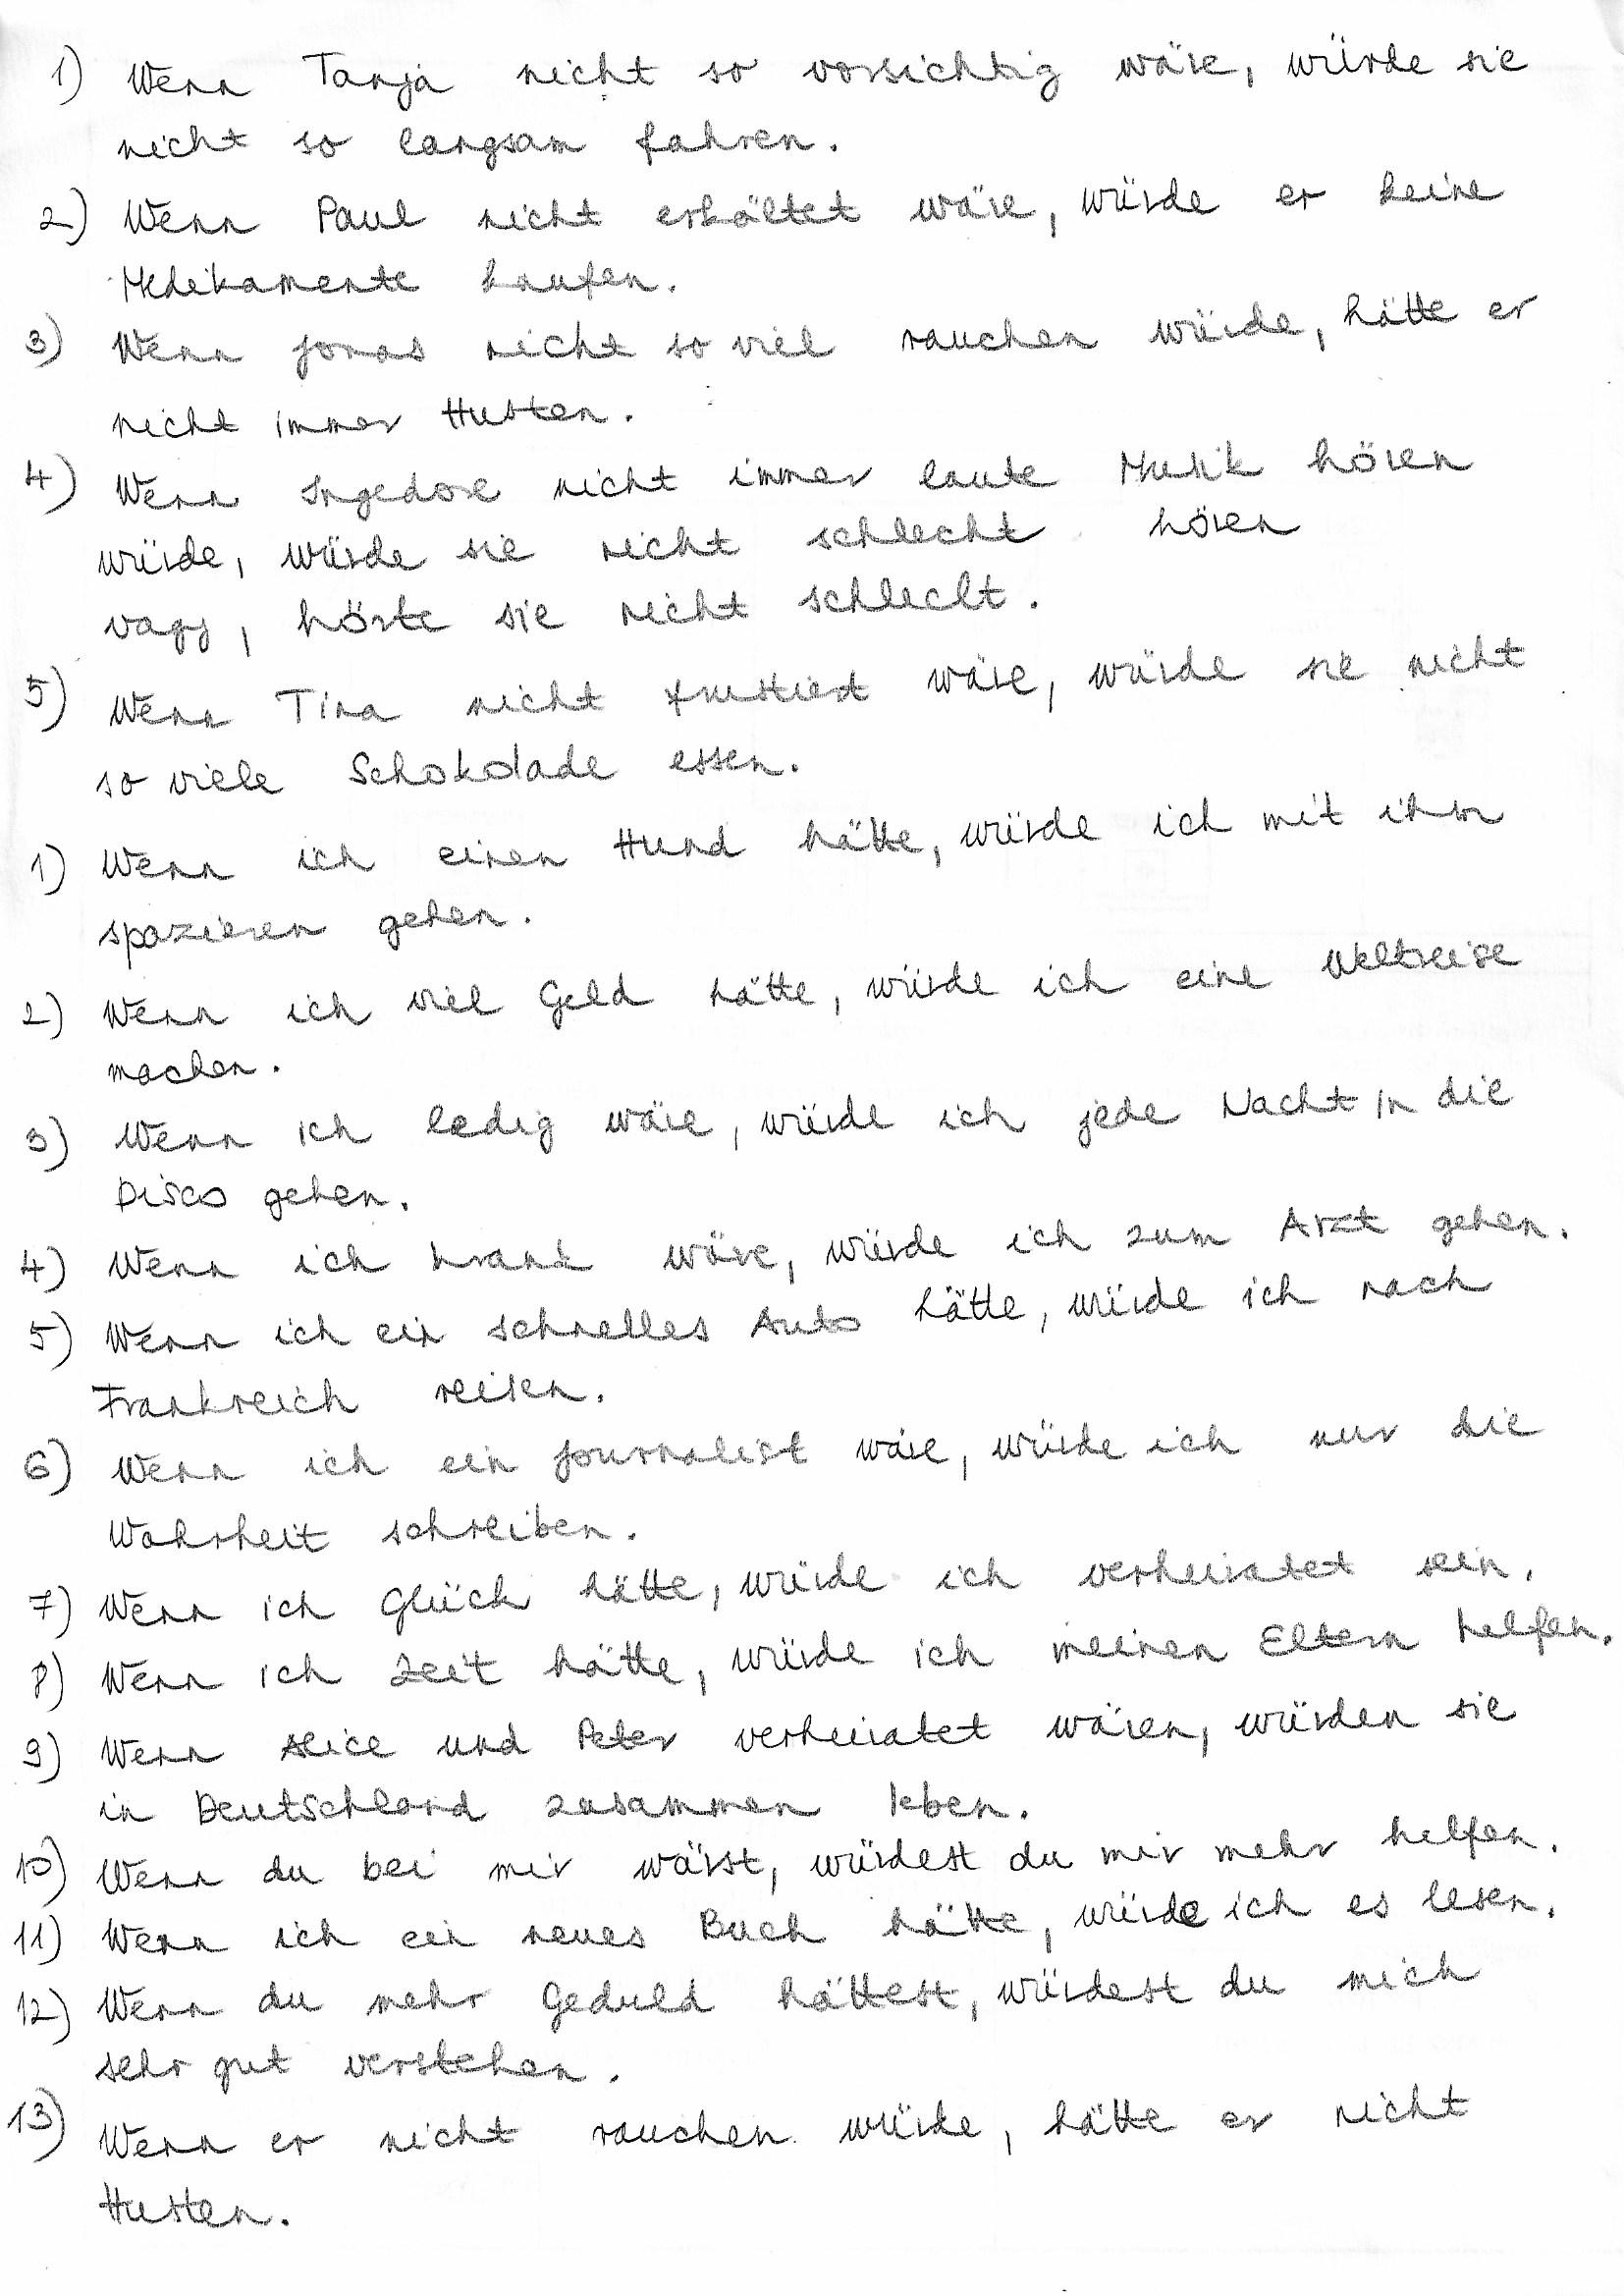 1) Wenn Tanja nicht so vorsichtig wäre, würde sie
nicht so langsam fahren.
2) Wenn Paul nicht erkältet wäre, würde er keine
Medikamente kaufen.
3) Wenn Jonas nicht so viel rauchen würde, hätte er
nicht immer Husten.
4) Wenn Ingedore nicht immer laute Musik hören
würde, würde sie nicht schlecht hören
vagy, hörte sie nicht schlecht.
5) Wenn Tina nicht frustriert wäre, würde sie nicht
so viele Schokolade essen.
1) Wenn ich einen Hund hätte, würde ich mit ihm
spazieren gehen.
2) Wenn ich viel Geld hätte, würde ich eine Weltreise
machen.
3) Wenn ich ledig wäre, würde ich jede Nacht in die
Disco gehen.
4) Wenn ich krank wäre, würde ich zum Arzt gehen.
5) Wenn ich ein schnelles Auto hätte, würde ich nach
Frankreich reisen.
6) Wenn ich ein Journalist wäre, würde ich nur die
Wahrheit schreiben.
7) Wenn ich Glück hätte, würde ich verheiratet sein.
8) Wenn ich Zeit hätte, würde ich meinen Eltern helfen.
9) Wenn Alice und Peter verheiratet wären, würden sie
in Deutschland zusammen leben.
10) Wenn du bei mir wärst, würdest du mir mehr helfen.
11) Wenn ich ein neues Buch hätte, würde ich es lesen.
12) Wenn du mehr Geduld hättest, würdest du mich
sehr gut verstehen.
13) Wenn er nicht rauchen würde, hätte er nicht
Husten.